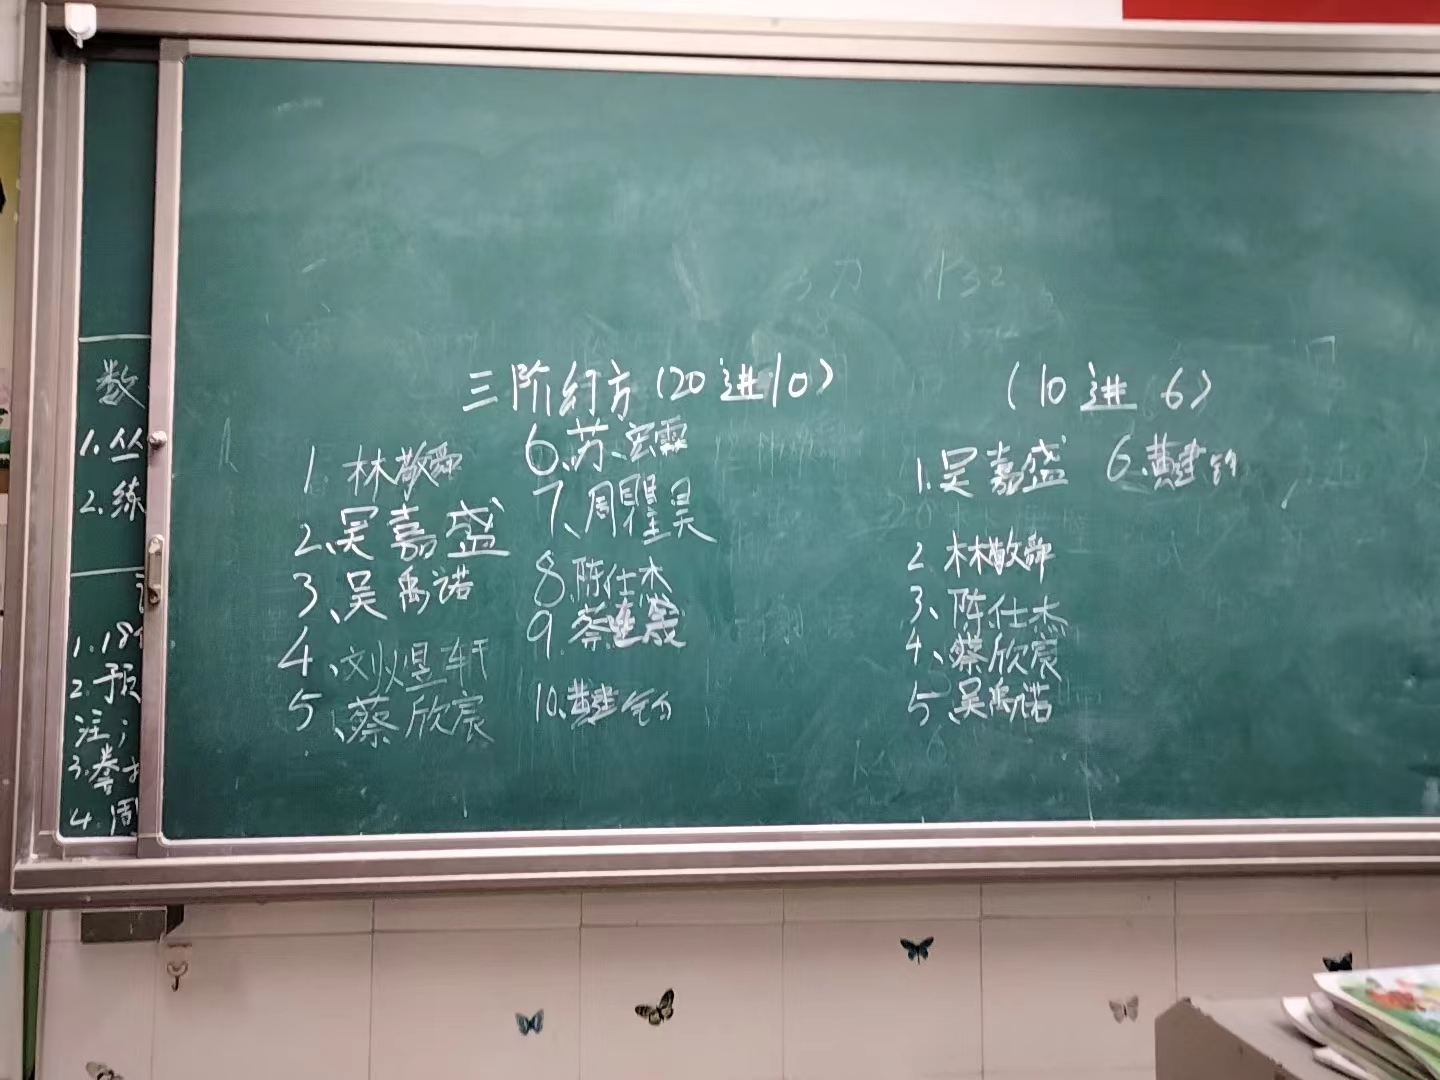 三阶幻方(20进10)
1.林敬舜
2、吴嘉盛
3、吴禹诺
4、刘煜轩
5、蔡欣宸
6、苏宏霖
7、周瞿昊
8、陈仕杰
9.蔡
10、黄建钧
(10进6)
1.吴嘉盛
2 林敬舜
3、陈仕杰
4、蔡欣宸
5、吴禹诺
6、黄建钧
数
1.丛
2.练
1.18
2.预
注;
3.誊
4.周